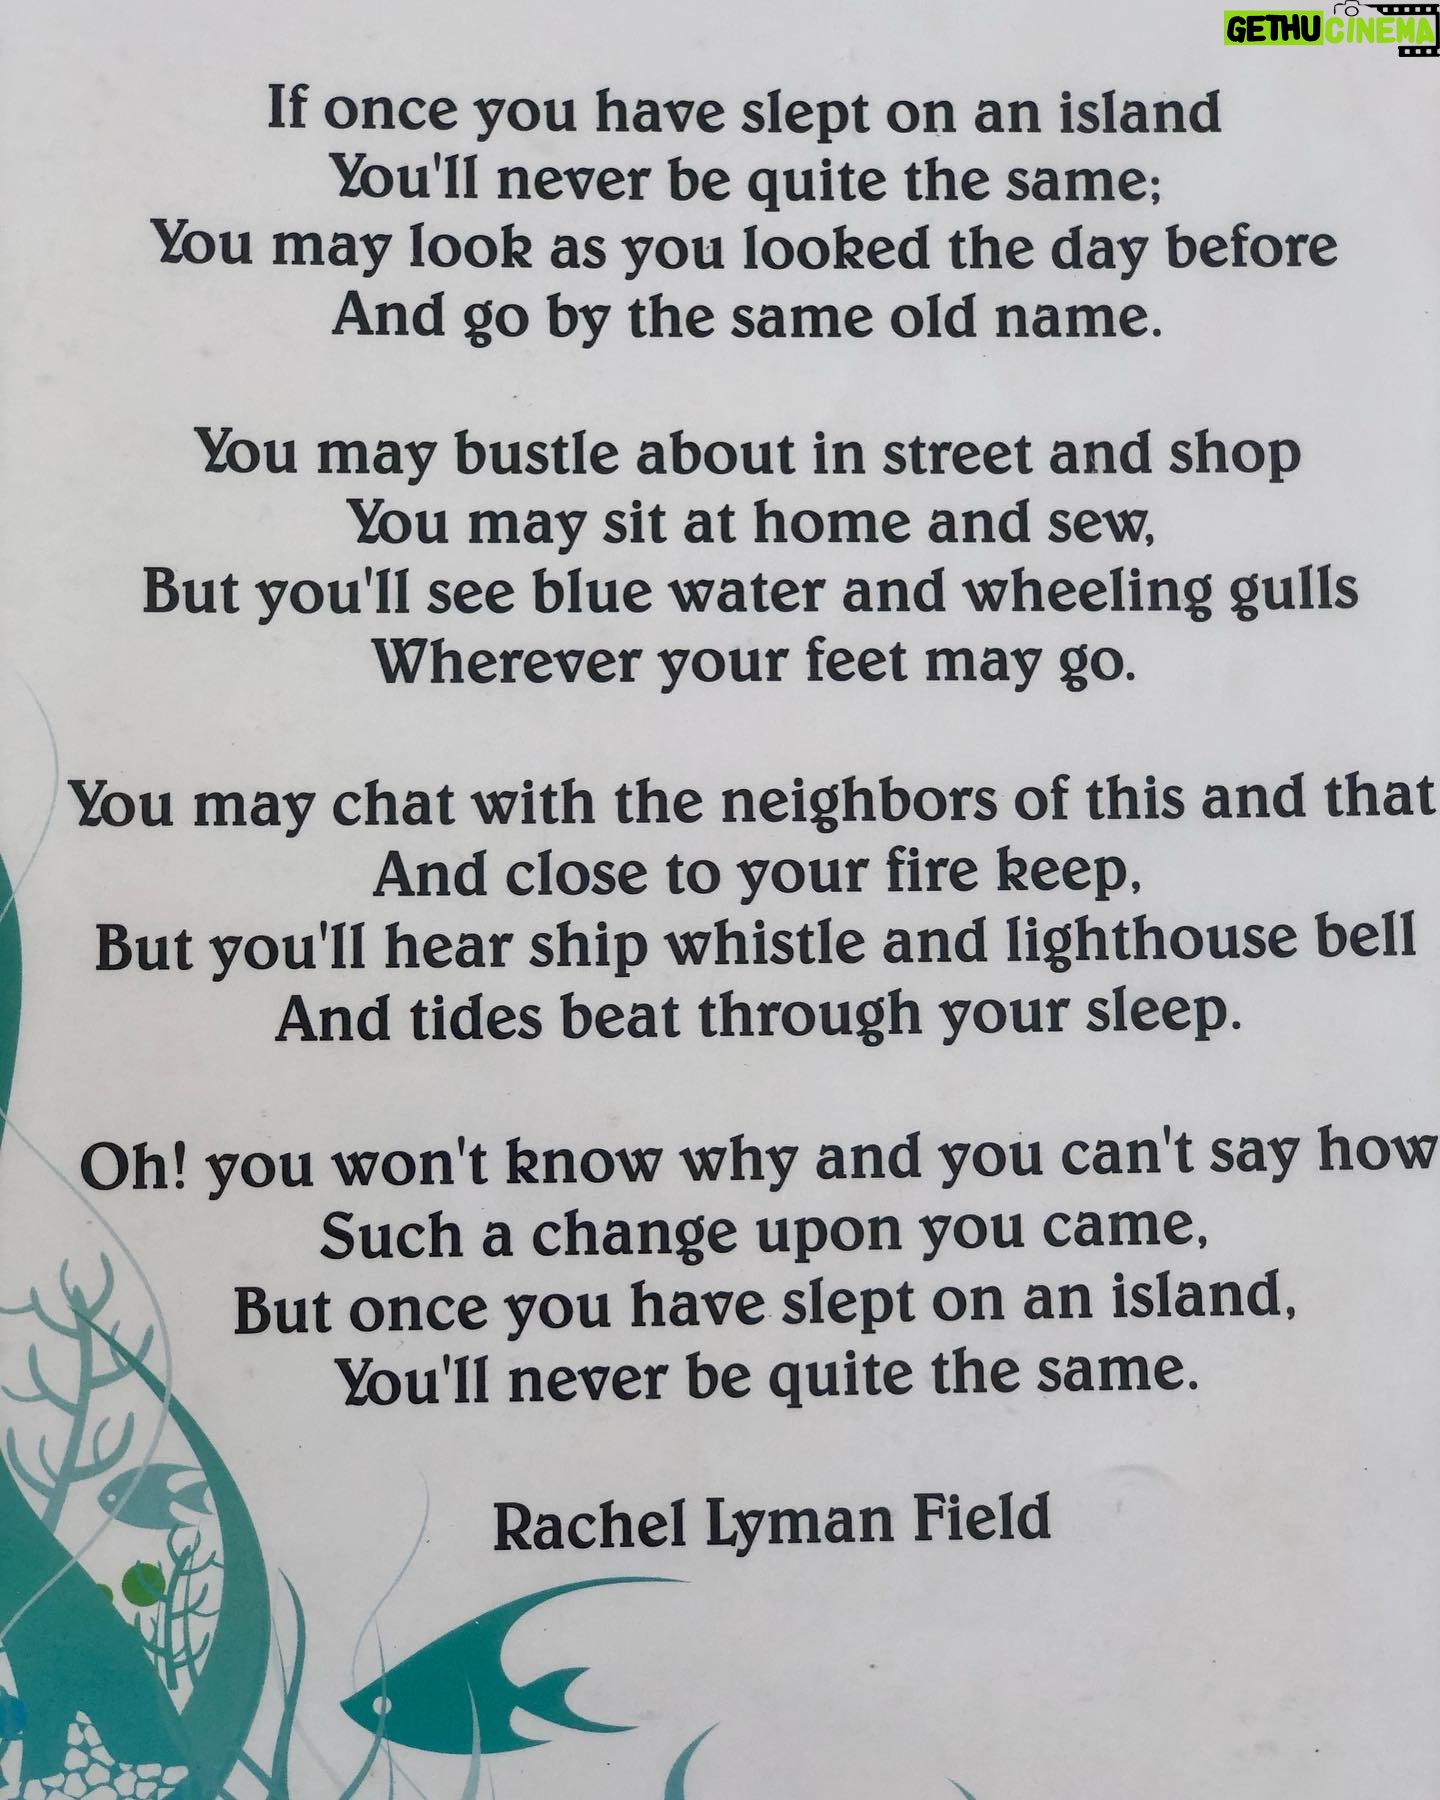 GETHUCINEMA
If once you have slept on an island
You'll never be quite the same;
You may look as you looked the day before
And go by the same old name.
You may bustle about in street and shop
You may sit at home and sew,
But you'll see blue water and wheeling gulls
Wherever your feet may go.
You may chat with the neighbors of this and that
And close to your fire keep,
But you'll hear ship whistle and lighthouse bell
And tides beat through your sleep.
Oh! you won't know why and you can't say how
Such a change upon you came,
But once you have slept on an island,
You'll never be quite the same.
Rachel Lyman Field